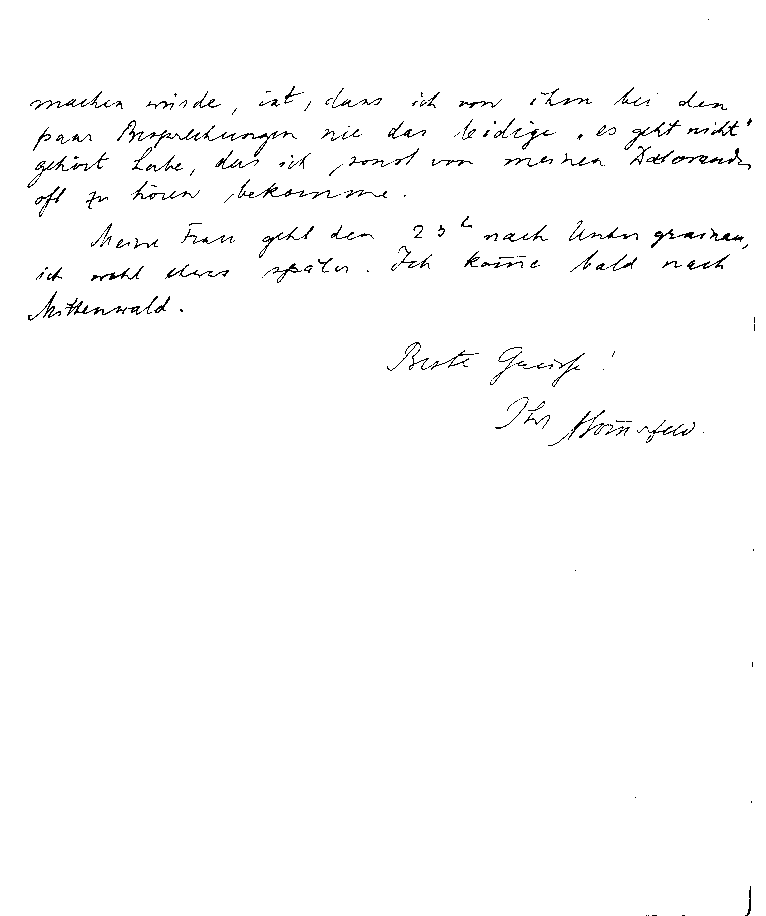 machen würde, ist, dass ich von ihm bei den
paar Besprechungen nie das leidige „es geht nicht"
gehört habe, das ich sonst von meinen Doktoranden
oft zu hören bekomme.
Meine Frau geht den 23t nach Untergrainau,
ich wohl etwas später. Ich kom̄e bald nach
Mittenwald.
Beste Grüsse!
Ihr ASom̄erfeld.